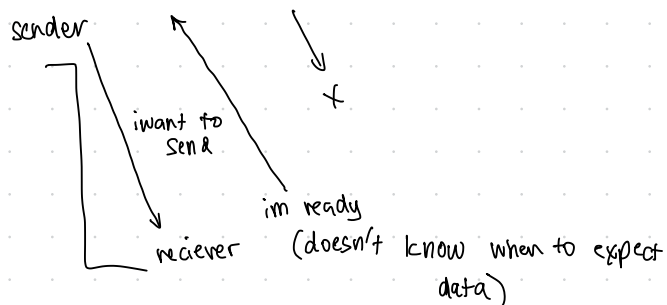 sender
x
i want to
send
im ready
reciever (doesn't know when to expect
data)